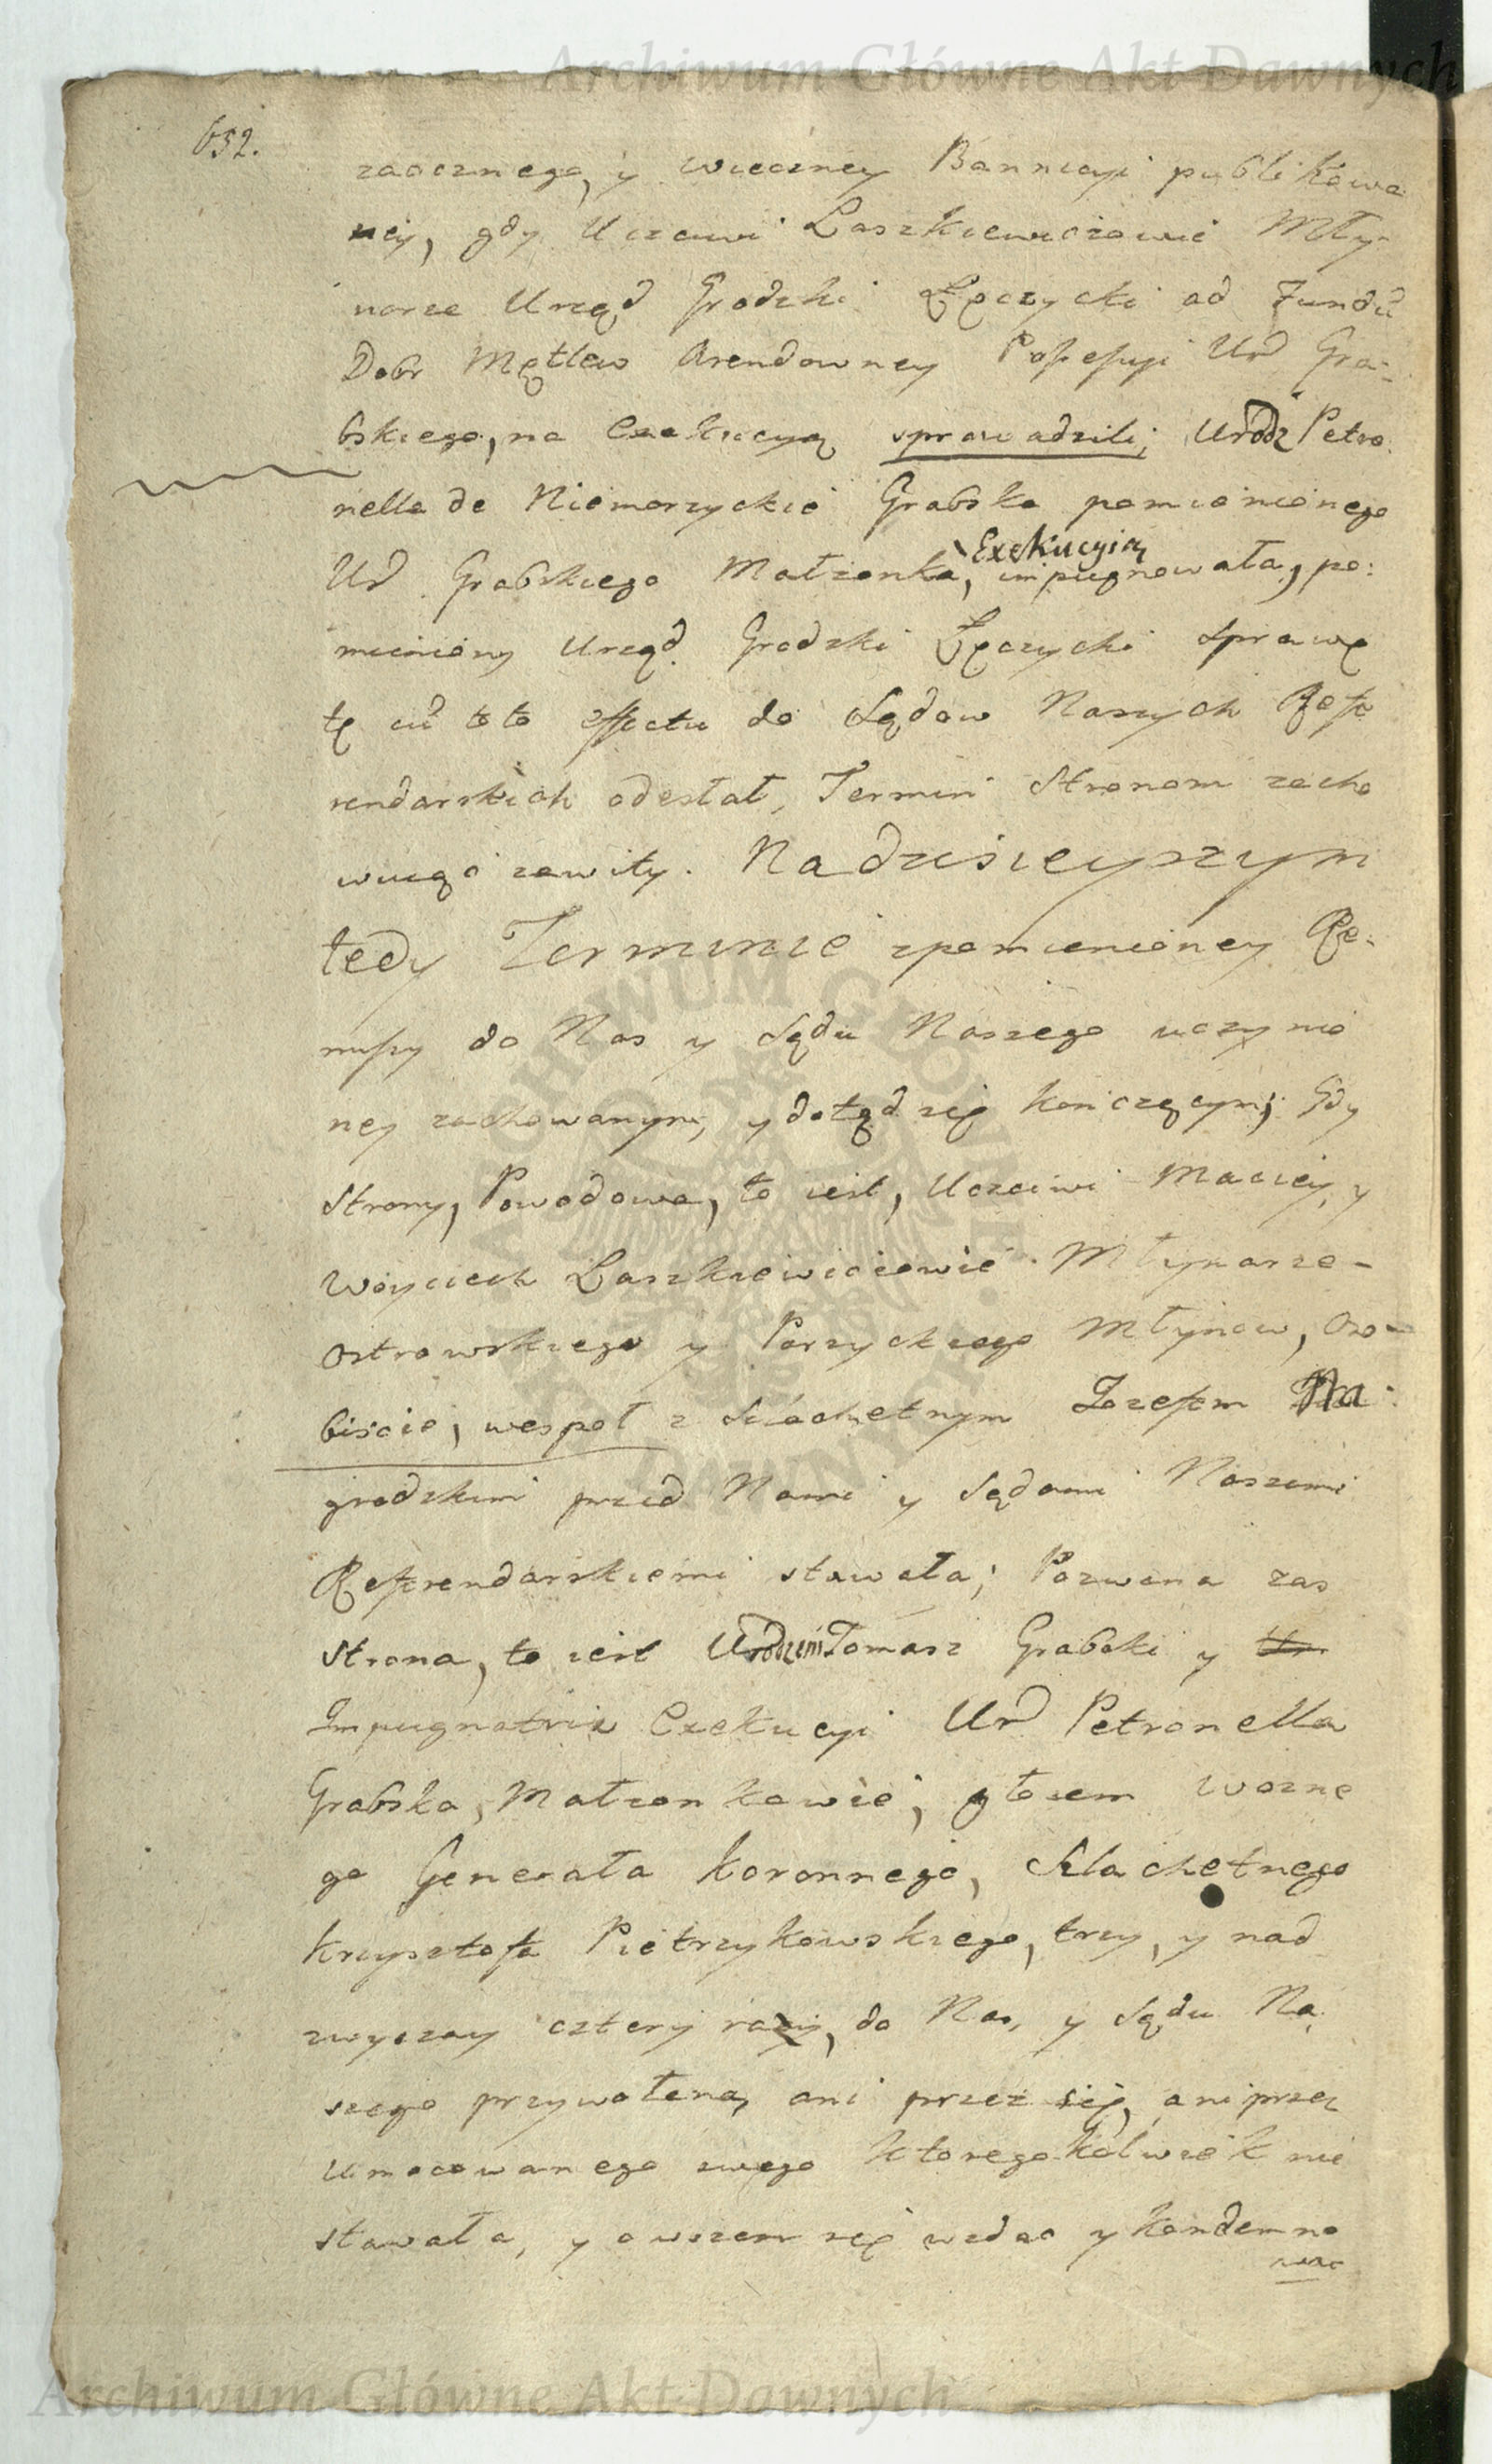 Archiwum Główne Akt Dawnych
652.
zaocznego, y wieczney Bannicyi publikowa
ney, gdy Uczciwi Laszkiewiczowie Mły-
narze Urząd Grodzki Łęczycki ad Fundũ
Dobr Mętlew Arendowney Possessyi Ur Gra-
bskiego, na Exekucyą sprowadzili; Urodz Petro
nella de Niemorzyckie Grabska pomienionego
Ur Grabskiego Małzonka, Exekucyią impugnowała, po:
mieniony Urząd Grodzki Łęczycki sprawę
tę cũ toto effectu do Sądow Naszych Refe
rendarskich odesłał, Termin Stronom zacho
wuiąc zawity. Na dzisieyszym
tedy Terminie zpomienioney Re:
missy do Nas y Sądu Naszego uczynio
ney zachowanym, y dotąd się kończącym; Gdy
Strony, Powodowa, to iest, Uczciwi Maciey, y
Woyciech Laszkiewiczowie Młynarze-
Ostrowskiego y Parzyckiego Młynow, Oso-
biscie, wespoł z Szlachetnym Jozefem Na:
grodzkim przed Nami y Sądami Naszemi
Referendarskiemi stawała; Pozwana zas
Strona, to iest Urodzeni Tomasz Grabski y Ur
Impugnatrix Exekucyi Ur Petronella
Grabska, Małzonkowie, głosem Wozne
go Generała Koronnego, Szlachetnego
Krzysztofa Pietrzykowskiego, trzy, y nad
zwyczay cztery razy, do Nas, y Sądu Na
szego przywołana, ani przez się, ani przez
Umocowanego swego ktoregokolwiek nie
stawała, y owszem się wzdac y kondemno
wac
Archiwum Główne Akt Dawnych